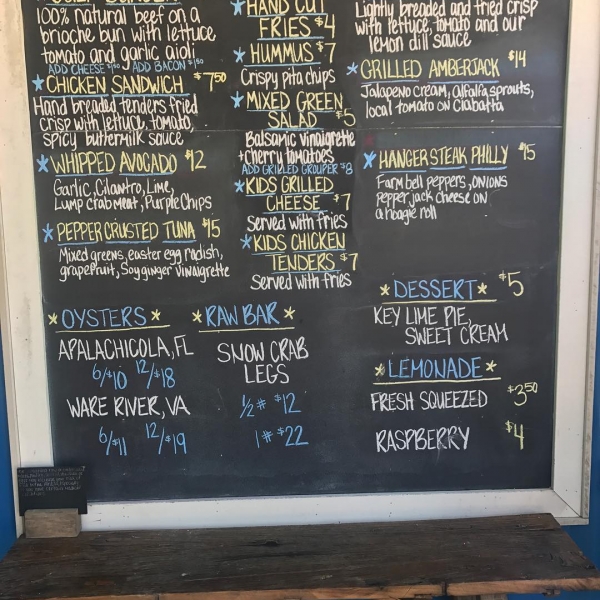 100% natural beef on a
brioche bun with lettuce
tomato and garlic aioli
ADD CHEESE $1.00 ADD BACON $1.50
* CHICKEN SANDWICH $7.50
Hand breaded tenders fried
crisp with lettuce, tomato,
spicy buttermilk sauce
* WHIPPED AVOCADO $12
Garlic, Cilantro, Lime,
Lump crab meat, Purple Chips
* PEPPER CRUSTED TUNA $15
Mixed greens, easter egg radish,
grapefruit, Soy ginger vinaigrette
* HAND CUT
FRIES $4
* HUMMUS $7
Crispy pita chips
* MIXED GREEN
SALAD $5
Balsamic vinaigrette
+ cherry tomatoes
ADD GRILLED GROUPER $8
* KIDS GRILLED
CHEESE $7
Served with fries
* KIDS CHICKEN
TENDERS $7
Served with fries
Lightly breaded and fried crisp
with lettuce, tomato and our
lemon dill sauce
* GRILLED AMBERJACK $14
Jalapeno cream, alfalfa sprouts,
local tomato on Ciabatta
* HANGER STEAK PHILLY $15
Farm bell peppers, onions
pepper jack cheese on
a hoagie roll
* OYSTERS *
APALACHICOLA, FL
6/$10 12/$18
WARE RIVER, VA
6/$11 12/$19
* RAW BAR *
SNOW CRAB
LEGS
1/2 # $12
1 # $22
* DESSERT * $5
KEY LIME PIE,
SWEET CREAM
* LEMONADE *
FRESH SQUEEZED $3.50
RASPBERRY $4